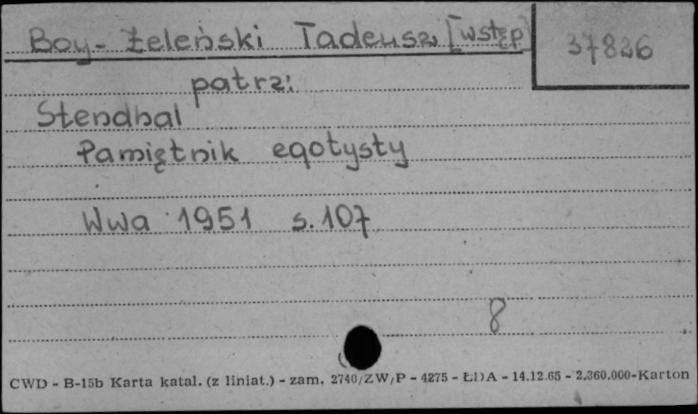 Boy-Żeleński Tadeusz [wstęp] 37826
patrz:
Stendhal
Pamiętnik egotysty
Wwa 1951 s.107
8
CWD - B-15b Karta katal. (z liniat.) - zam. 2740/ZW/P - 4275 - ŁDA - 14.12.65 - 2.360.000-Karton